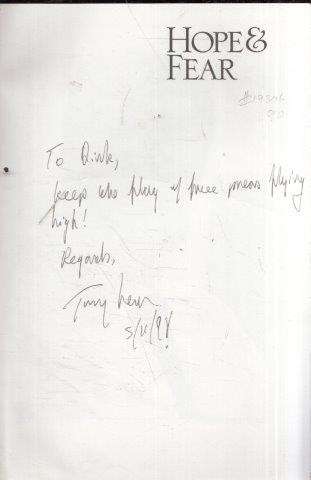 HOPE &
FEAR
To
keep the flag of free press flying
high!
Regards,
Tony Leon
5/11/98